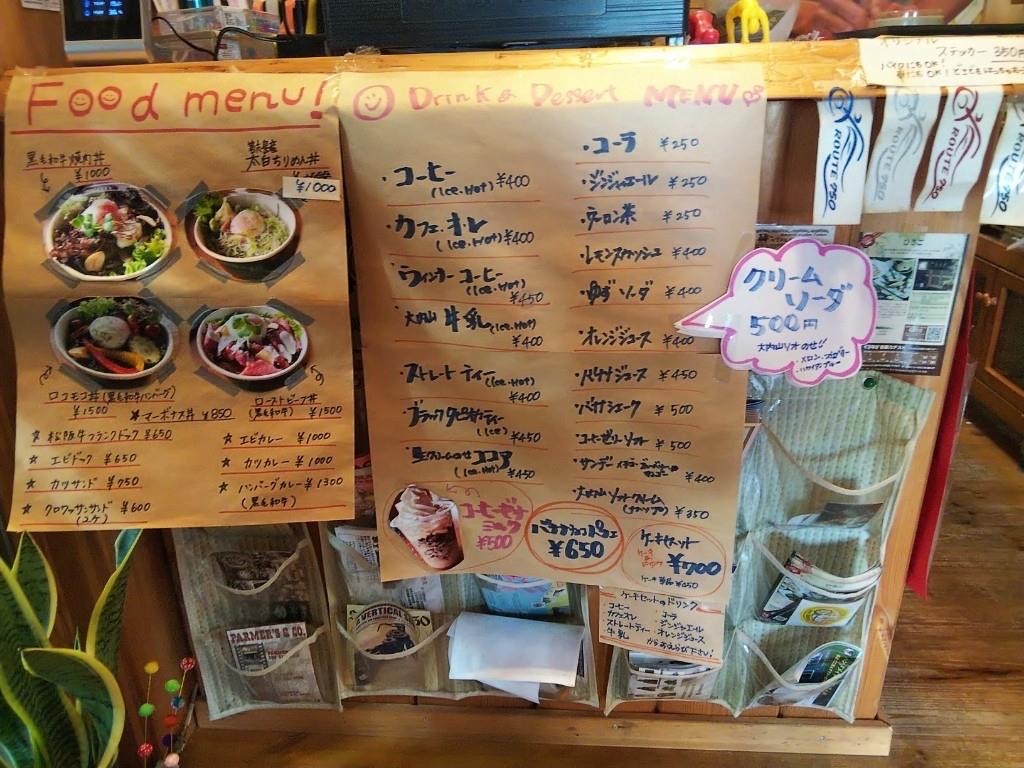 Food menu!
黒毛和牛焼肉丼
¥1000
太白ちりめん丼
¥1000
ロコモコ丼(黒毛和牛ハンバーグ)
¥1500
ローストビーフ丼
(黒毛和牛) ¥1500
★マーボナス丼 ¥850
★松阪牛フランクドック ¥650
★エビドック ¥650
★カツサンド ¥750
★クロワッサンサンド ¥600
(2ケ)
★エビカレー ¥1000
★カツカレー ¥1000
★ハンバーグカレー ¥1300
(黒毛和牛)
Drink & Dessert MENU
・コーヒー
(Ice.Hot) ¥400
・カフェ・オ・レ
(Ice.Hot) ¥400
・ウィンナーコーヒー
(Ice.Hot) ¥450
・大内山牛乳 (Ice.Hot)
¥400
・ストレートティー (Ice.Hot)
¥400
・ブラックタピオカティー
(Ice) ¥450
・生クリームのせココア
(Ice.Hot) ¥450
・コーラ ¥250
・ジンジャエール ¥250
・ウーロン茶 ¥250
・レモンスカッシュ ¥400
・ゆずソーダ ¥400
・オレンジジュース ¥400
・バナナジュース ¥450
・バナナシェーク ¥500
・コーヒーゼリーソフト ¥500
・サンデー
¥400
・大内山ソフトクリーム
¥350
コーヒーゼリー
ミルク
¥500
バナナチョコパフェ
¥650
ケーキセット
ケーキ&ドリンク
¥700
ケーキ単品 ¥450
ケーキセットのドリンク
・コーヒー ・コーラ
・カフェオレ ・ジンジャエール
・ストレートティー ・オレンジジュース
・牛乳
からお選び下さい!
クリーム
ソーダ
500円
大内山ソフトのせ!!
・メロン・ブルーハワイ
オリジナル
ステッカー 350円
バイクにもOK!
ROUTE 950
ROUTE 950
ROUTE 950
ROUTE 950
FARMER'S & CO.
VERTICAL